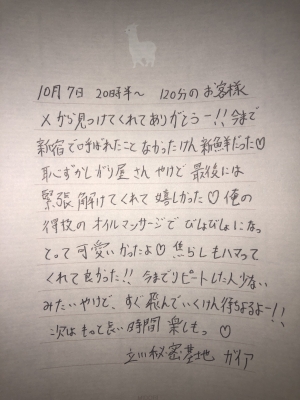 10月7日 20時半〜 120分のお客様
Xから見つけてくれてありがとうー!!今まで
新宿で呼ばれたことなかったけん新鮮だった♡
恥ずかしがり屋さんやけど最後には
緊張解けてくれて嬉しかった♡俺の
得技のオイルマッサージでびしょびしょになっ
とって可愛いかったよ♡焦らしもハマって
くれて良かった!!今までリピートした人少ない
みたいやけど、すぐ飛んでいくけん待ちよるよー!!
次はもっと長い時間楽しもっ♡
立川秘密基地 ガイア